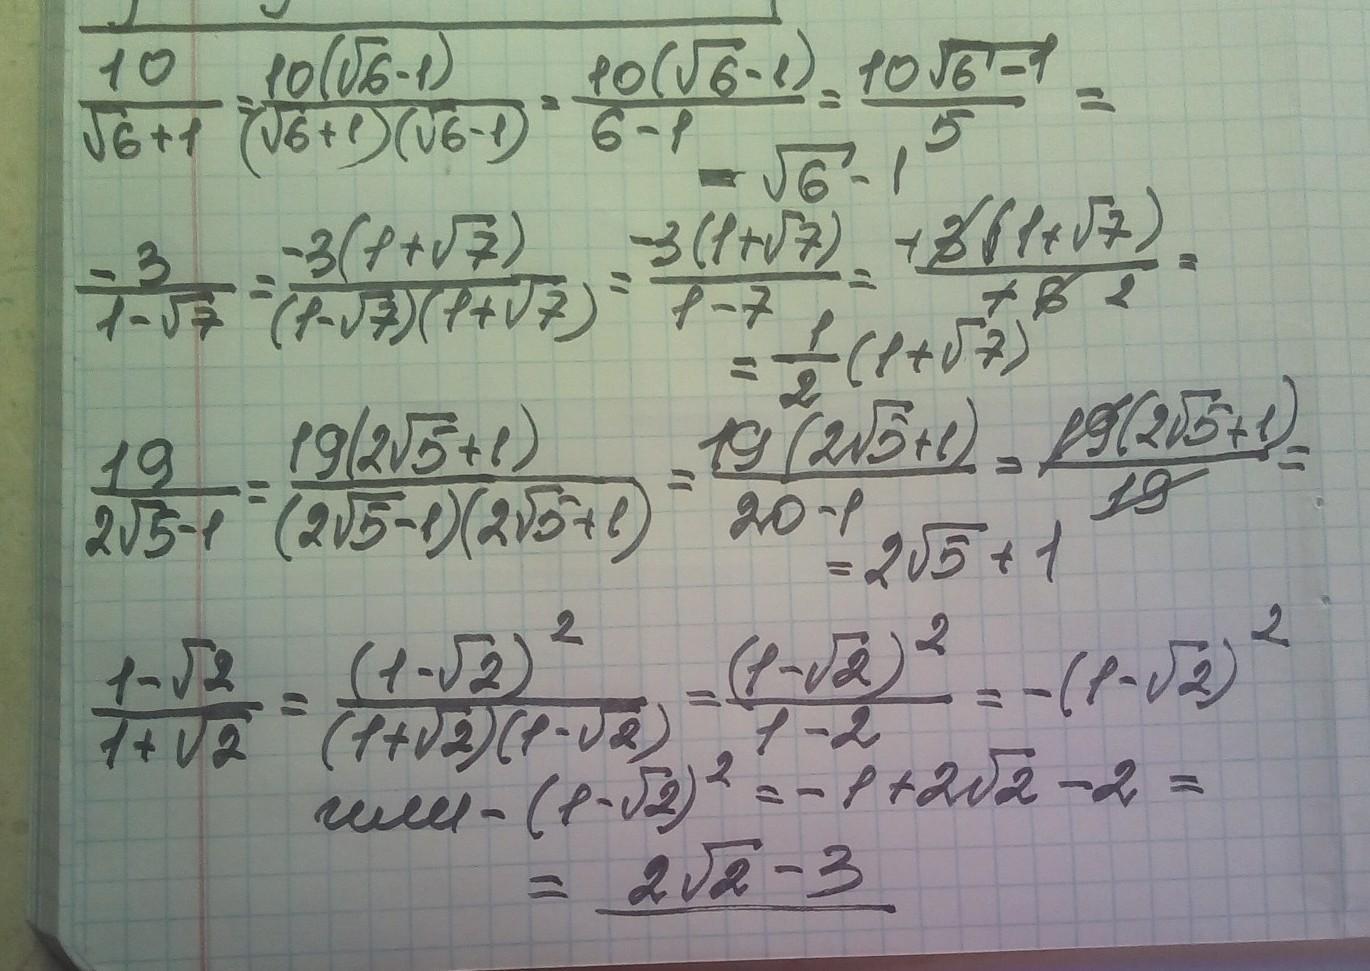 10/(√6+1) = 10(√6-1)/((√6+1)(√6-1)) = 10(√6-1)/(6-1) = 10√6-1/5 =
= √6-1
-3/(1-√7) = -3(1+√7)/((1-√7)(1+√7)) = -3(1+√7)/(1-7) = +3(1+√7)/+6 2 =
= 1/2 (1+√7)
19/(2√5-1) = 19(2√5+1)/((2√5-1)(2√5+1)) = 19(2√5+1)/(20-1) = 19(2√5+1)/19 =
= 2√5+1
(1-√2)/(1+√2) = (1-√2)²/((1+√2)(1-√2)) = (1-√2)²/(1-2) = -(1-√2)²
или -(1-√2)² = -1+2√2-2 =
= 2√2-3